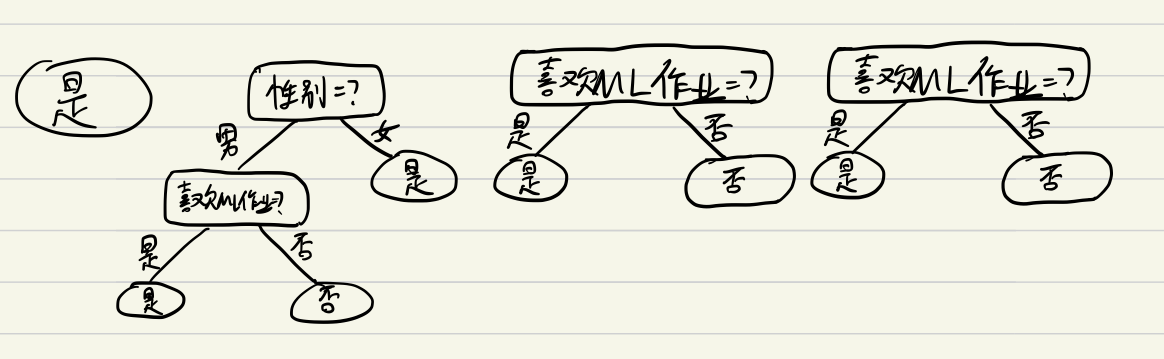 是
性别=?
男
女
喜欢ML作业=?
是
是
否
是
否
喜欢ML作业=?
是
否
是
否
喜欢ML作业=?
是
否
是
否